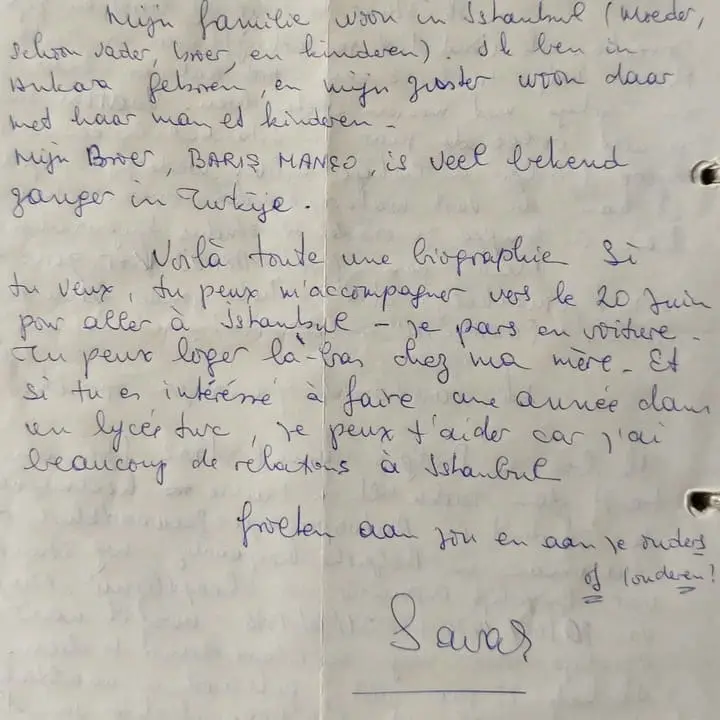 Mijn familie woon in Istanbul (moeder,
schoon vader, broer, en kinderen). Ik ben in
Ankara geboren, en mijn zuster woon daar
met haar man et kinderen.
Mijn Broer, BARIŞ MANÇO, is veel bekend
zanger in Turkije.
Voilà toute une biographie Si
tu veux, tu peux m'accompagner vers le 20 Juin
pour aller à Istanbul - je pars en voiture.
Tu peux loger là-bas chez ma mère. Et
si tu es intéréssé à faire une année dans
un lycée turc, je peux t'aider car j'ai
beaucoup de relations à Istanbul
Groeten aan jou en aan je ouders
of (ouderen?
Savaş